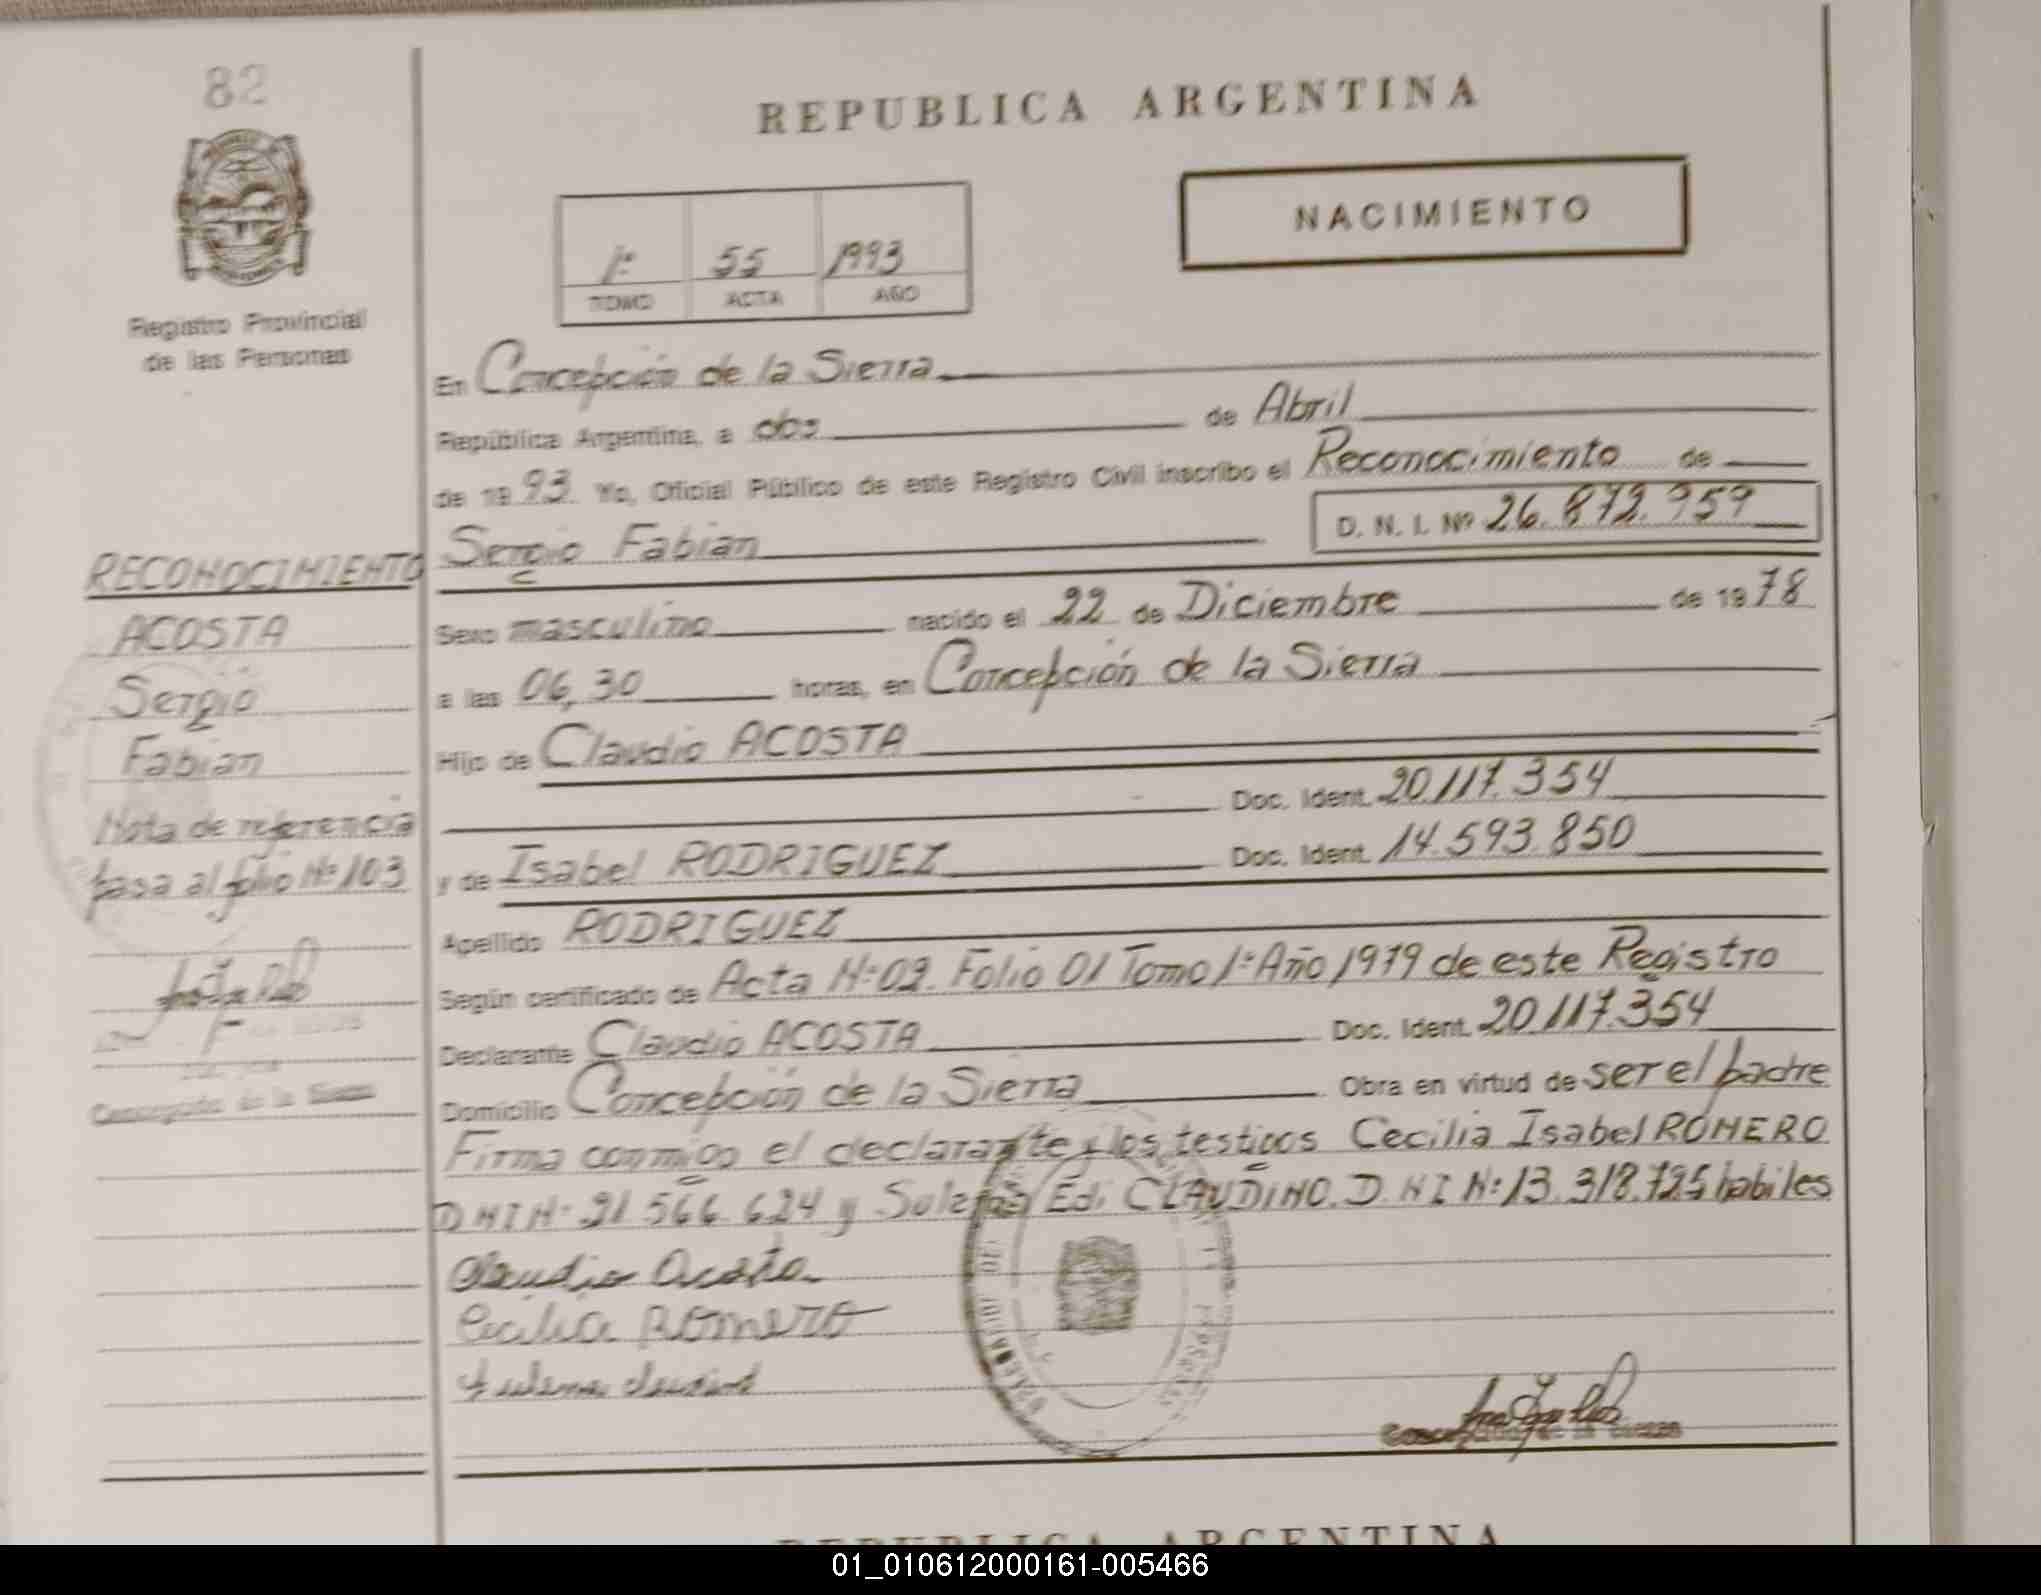 82
REPUBLICA ARGENTINA
NACIMIENTO
1º 55 1993
TOMO ACTA AÑO
Registro Provincial
de las Personas
En Concepción de la Sierra
República Argentina, a dos de Abril
de 1993 Yo, Oficial Público de este Registro Civil inscribo el Reconocimiento de
D. N. I. Nº 26.872.959
Sergio Fabian
RECONOCIMIENTO
ACOSTA
Sergio
Fabian
Nota de referencia
pasa al folio Nº 103
Concepción de la Sierra
Sexo masculino nacido el 22 de Diciembre de 1978
a las 06,30 horas, en Concepción de la Sierra
Hijo de Claudio ACOSTA
Doc. Ident. 20.117.354
y de Isabel RODRIGUEZ Doc. Ident. 14.593.850
Apellido RODRIGUEZ
Según certificado de Acta Nº 02 Folio 01 Tomo 1º Año 1979 de este Registro
Declarante Claudio ACOSTA Doc. Ident. 20.117.354
Domicilio Concepción de la Sierra Obra en virtud de ser el padre
Firma conmigo el declarante y los testigos Cecilia Isabel ROMERO
DNI Nº 21.566.624 y Edi CLAUDINO. D N I Nº 13.318.725 habiles
Claudio Acosta
Cecilia Romero
REPUBLICA ARGENTINA
01_010612000161-005466